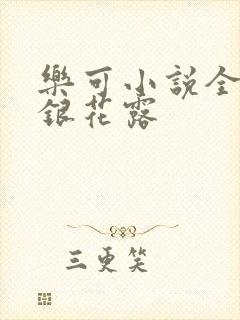 樂可小說全
銀花露
三更笑